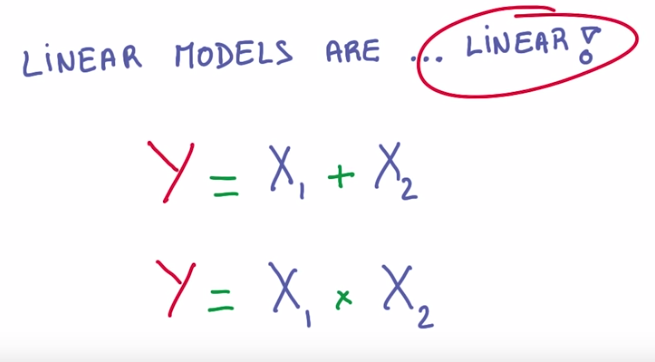 LINEAR MODELS ARE ... LINEAR!
Y = X₁ + X₂
Y = X₁ × X₂